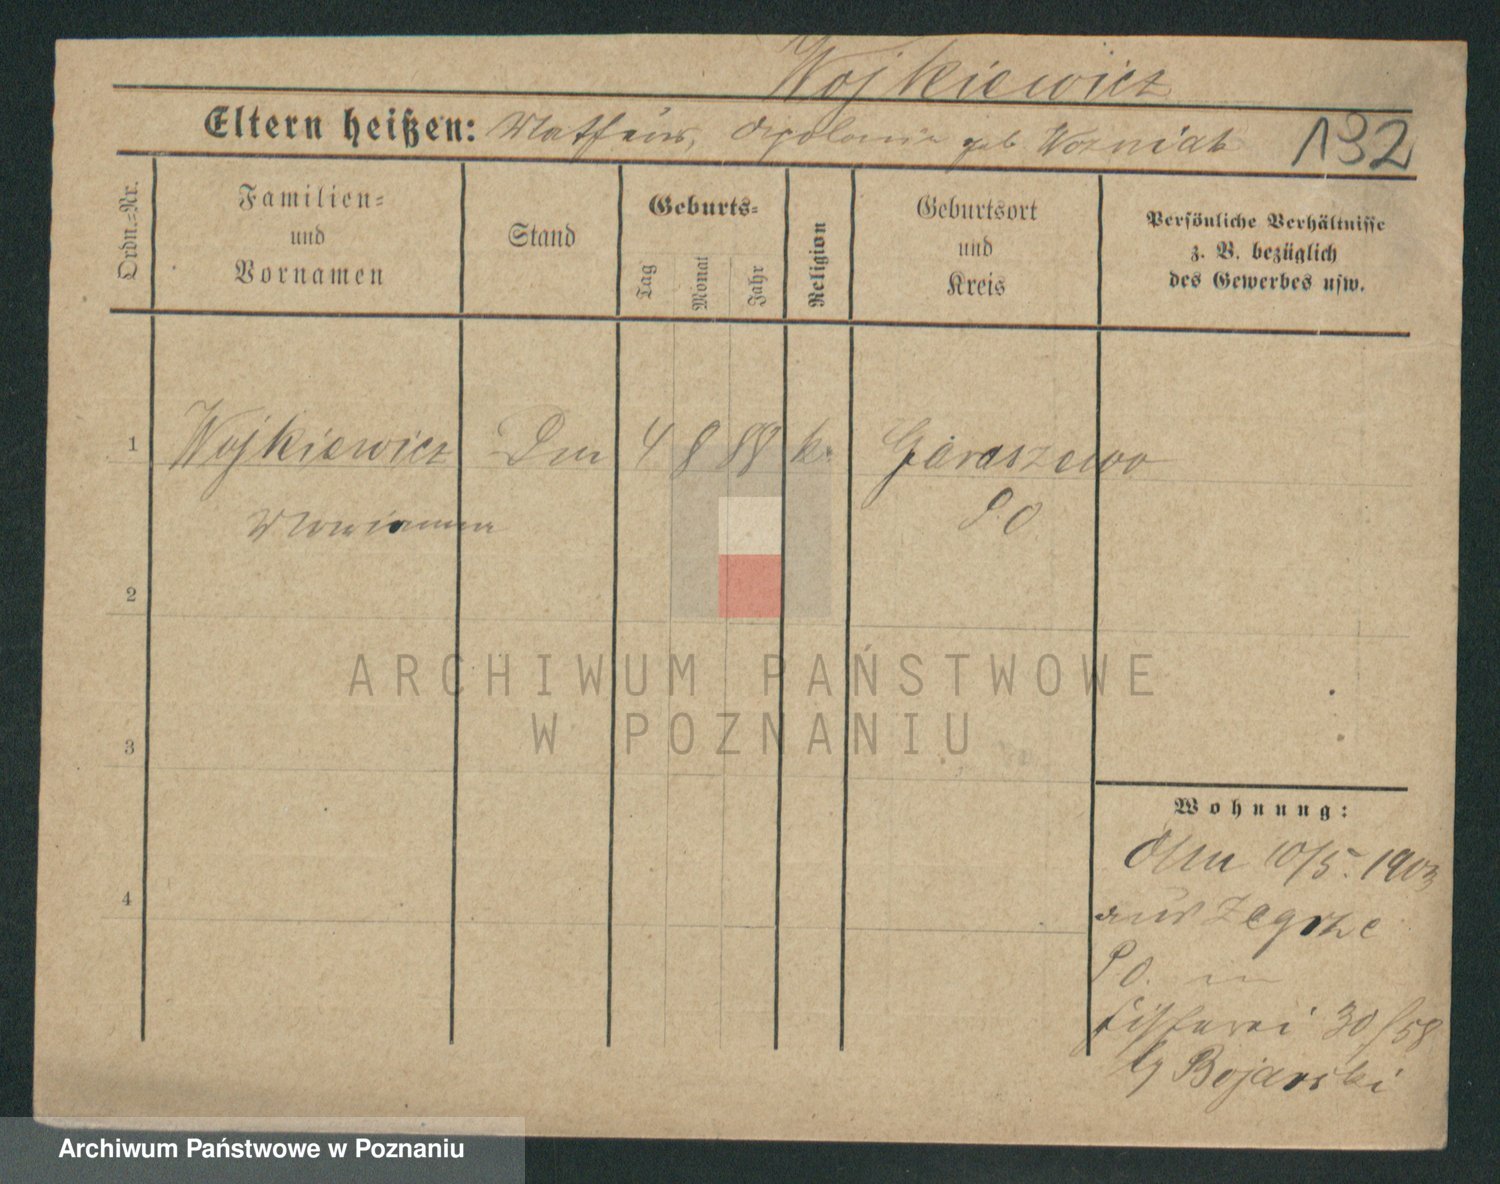 Wojkiewicz
Eltern heißen: Mathäus, Apolonia geb. Wozniak
132
Ordn.=Nr.
Familien=
und
Vornamen
Stand
Geburts=
Tag
Monat
Jahr
Religion
Geburtsort
und
Kreis
Persönliche Verhältnisse
z. B. bezüglich
des Gewerbes usw.
1 Wojkiewicz 4 8 88 k. Garaszewo
P.O.
2
3
4
Wohnung:
10/5. 1903
aus Zegrze
P O. in
Fischerei 30/58
Bojarski
ARCHIWUM PAŃSTWOWE
W POZNANIU
Archiwum Państwowe w Poznaniu